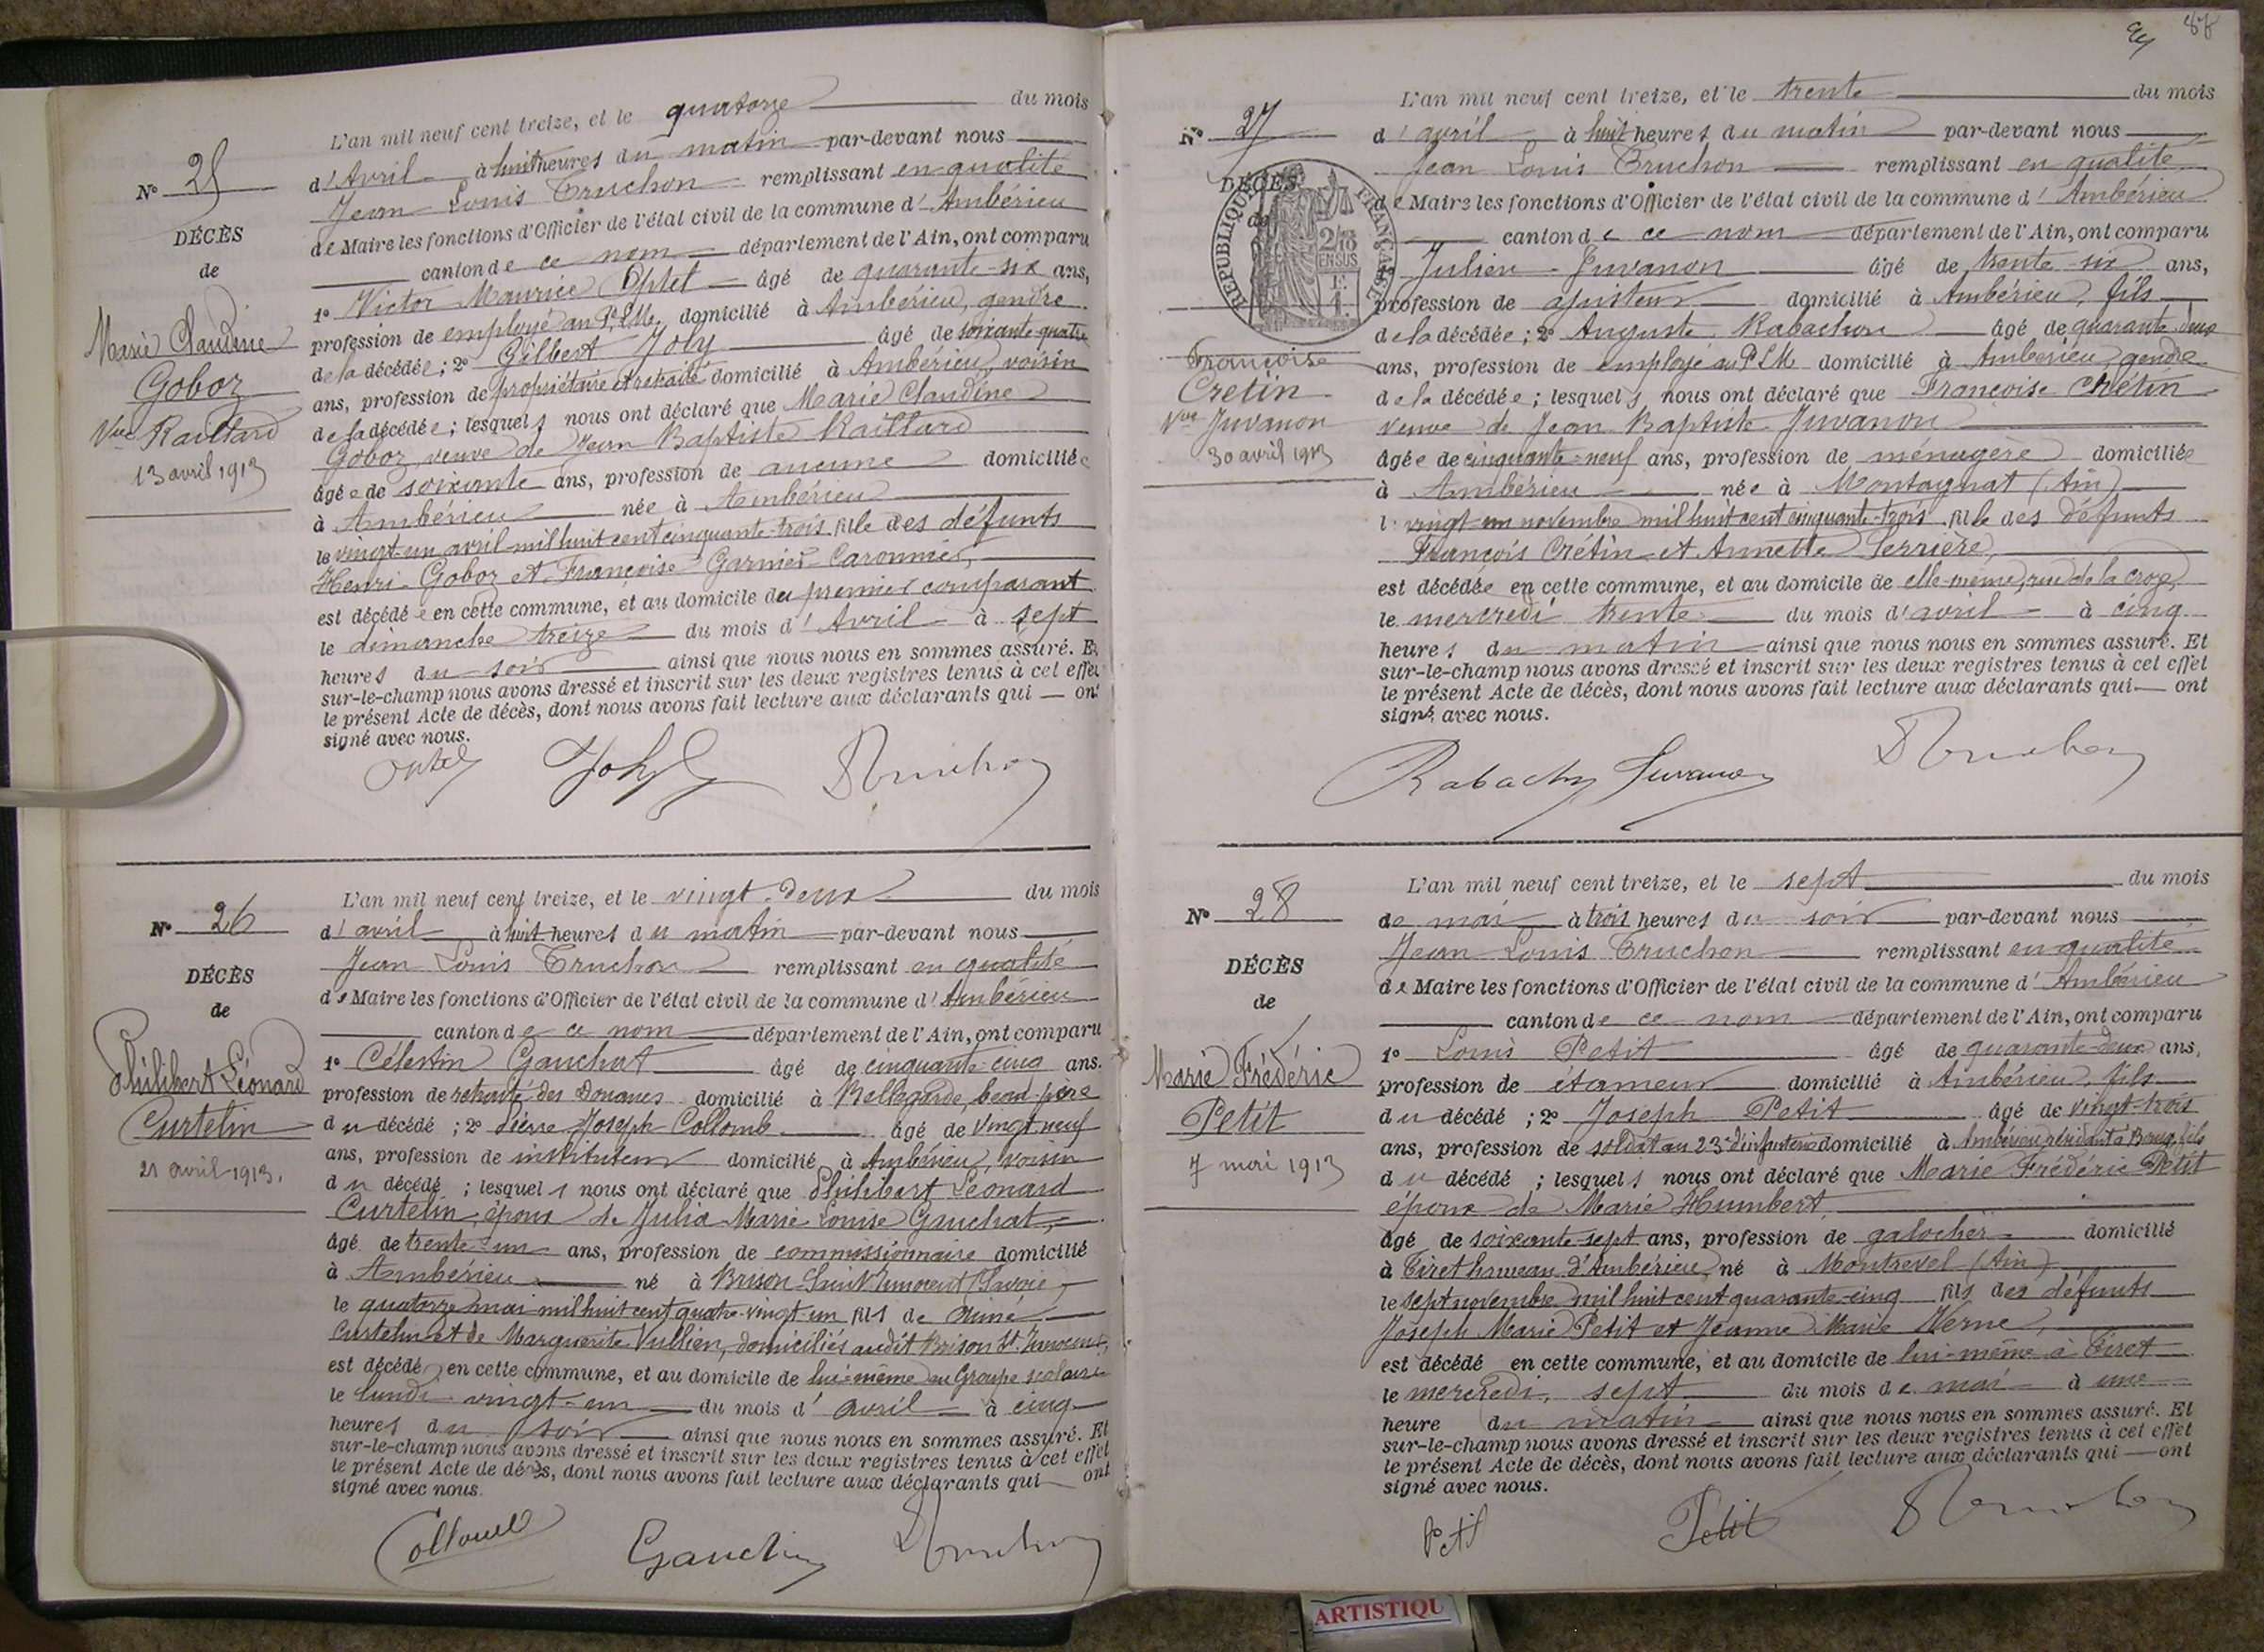 L'an mil neuf cent treize, et le quatorze du mois
N° 25
d'Avril à huit heures du matin par-devant nous
Jean Louis Truchon remplissant en qualité
DÉCÈS
de Maire les fonctions d'Officier de l'état civil de la commune d'Ambérieu
de
canton de ce nom département de l'Ain, ont comparu
1° Victor Maurice Optel âgé de quarante-six ans,
Marie Claudine
profession de employé au P.L.M. domicilié à Ambérieu, gendre
Goboz
de la décédée ; 2° Gilbert Joly âgé de soixante-quatre
ans, profession de propriétaire et retraité domicilié à Ambérieu, voisin
Vve Raillard
de la décédée ; lesquels nous ont déclaré que Marie Claudine
13 avril 1913
Goboz, veuve de Jean Baptiste Raillard
âgée de soixante ans, profession de aucune domiciliée
à Ambérieu née à Ambérieu
le vingt-un avril mil huit cent cinquante-trois fille des défunts
Henri Goboz et Françoise Garnier-Caronnier,
est décédée en cette commune, et au domicile du premier comparant
le dimanche treize du mois d'Avril à sept
heures du soir ainsi que nous nous en sommes assuré. Et
sur-le-champ nous avons dressé et inscrit sur les deux registres tenus à cet effet
le présent Acte de décès, dont nous avons fait lecture aux déclarants qui ont
signé avec nous.
Optel Joly Truchon
L'an mil neuf cent treize, et le vingt-deux du mois
N° 26
d'avril à huit heures du matin par-devant nous
Jean Louis Truchon remplissant en qualité
DÉCÈS
de Maire les fonctions d'Officier de l'état civil de la commune d'Ambérieu
de
canton de ce nom département de l'Ain, ont comparu
1° Célestin Gauchat âgé de cinquante-cinq ans,
Philibert Léonard
profession de retraité des Douanes domicilié à Bellegarde, beau-père
Curtelin
du décédé ; 2° Pierre Joseph Collomb âgé de vingt-neuf
ans, profession de instituteur domicilié à Ambérieu, voisin
21 avril 1913.
du décédé ; lesquels nous ont déclaré que Philibert Léonard
Curtelin, époux de Julia Marie Louise Gauchat,
âgé de trente-un ans, profession de commissionnaire domicilié
à Ambérieu né à Brison-Saint Innocent (Savoie)
le quatorze mai mil huit cent quatre-vingt-un fils de Aimé
Curtelin et de Marguerite Vullien, domiciliés audit Brison St. Innocent,
est décédé en cette commune, et au domicile de lui-même au Groupe scolaire
le lundi vingt-un du mois d'avril à cinq
heures du soir ainsi que nous nous en sommes assuré. Et
sur-le-champ nous avons dressé et inscrit sur les deux registres tenus à cet effet
le présent Acte de décès, dont nous avons fait lecture aux déclarants qui ont
signé avec nous.
Collomb Gauchat Truchon
87
L'an mil neuf cent treize, et le trente du mois
N° 27
d'avril à huit heures du matin par-devant nous
Jean Louis Truchon remplissant en qualité
DÉCÈS
RÉPUBLIQUE FRANÇAISE
de Maire les fonctions d'Officier de l'état civil de la commune d'Ambérieu
de
canton de ce nom département de l'Ain, ont comparu
Julien Juvanon âgé de trente-six ans,
profession de ajusteur domicilié à Ambérieu, fils
de la décédée ; 2° Auguste Rabachon âgé de quarante-deux
Françoise
ans, profession de employé au P.L.M. domicilié à Ambérieu, gendre
Crétin
de la décédée ; lesquels nous ont déclaré que Françoise Crétin
Vve Juvanon
veuve de Jean Baptiste Juvanon
30 avril 1913
âgée de cinquante-neuf ans, profession de ménagère domiciliée
à Ambérieu née à Montagnat (Ain)
le vingt-un novembre mil huit cent cinquante-trois fille des défunts
François Crétin et Annette Perrière,
est décédée en cette commune, et au domicile de elle-même, rue de la croze,
le mercredi trente du mois d'avril à cinq
heures du matin ainsi que nous nous en sommes assuré. Et
sur-le-champ nous avons dressé et inscrit sur les deux registres tenus à cet effet
le présent Acte de décès, dont nous avons fait lecture aux déclarants qui ont
signé avec nous.
Rabachon Juvanon Truchon
L'an mil neuf cent treize, et le sept du mois
N° 28
de mai à trois heures du soir par-devant nous
Jean Louis Truchon remplissant en qualité
DÉCÈS
de Maire les fonctions d'Officier de l'état civil de la commune d'Ambérieu
de
canton de ce nom département de l'Ain, ont comparu
1° Louis Petit âgé de quarante-deux ans,
Marie Frédéric
profession de étameur domicilié à Ambérieu, fils
Petit
du décédé ; 2° Joseph Petit âgé de vingt-trois
ans, profession de soldat au 23e d'infanterie domicilié à Ambérieu résidant à Bourg, fils
7 mai 1913
du décédé ; lesquels nous ont déclaré que Marie Frédéric Petit
époux de Marie Humbert
âgé de soixante-sept ans, profession de galocher domicilié
à Tiret hameau d'Ambérieu, né à Montrevel (Ain)
le sept novembre mil huit cent quarante-cinq fils des défunts
Joseph Marie Petit et Jeanne Marie Verne,
est décédé en cette commune, et au domicile de lui-même à Tiret
le mercredi sept du mois de mai à une
heure du matin ainsi que nous nous en sommes assuré. Et
sur-le-champ nous avons dressé et inscrit sur les deux registres tenus à cet effet
le présent Acte de décès, dont nous avons fait lecture aux déclarants qui ont
signé avec nous.
Petit Petit Truchon
ARTISTIQU